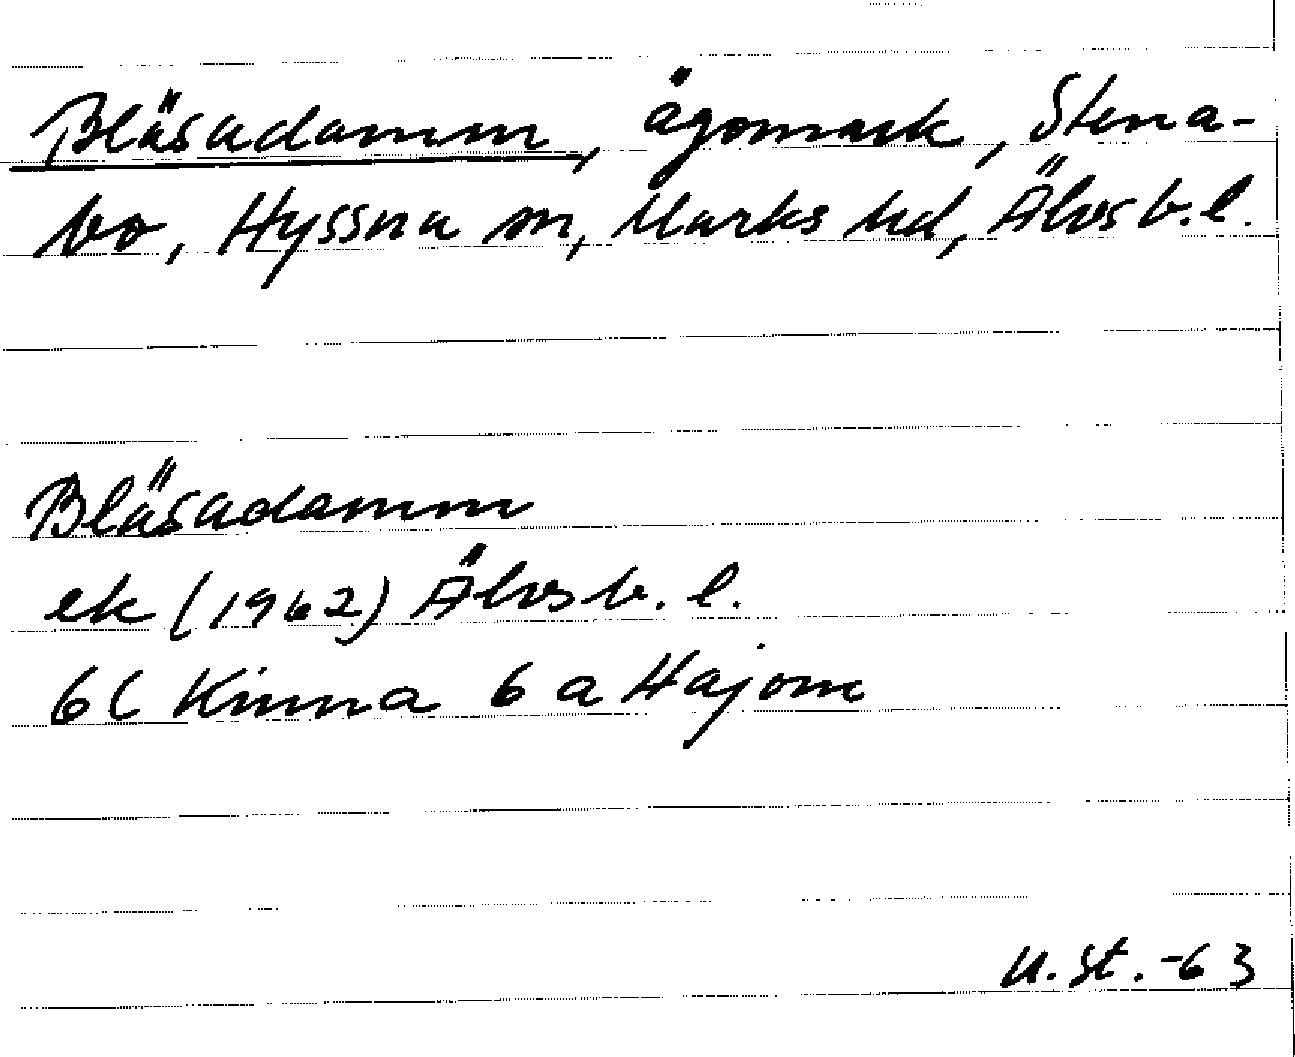 Bläsadamm, ägomark, Stena-
bo, Hyssna sn, Marks hd, Älvsb. l.
Bläsadamm
ek (1962) Älvsb. l.
6C Kinna 6 a Hajom
U. St. -63